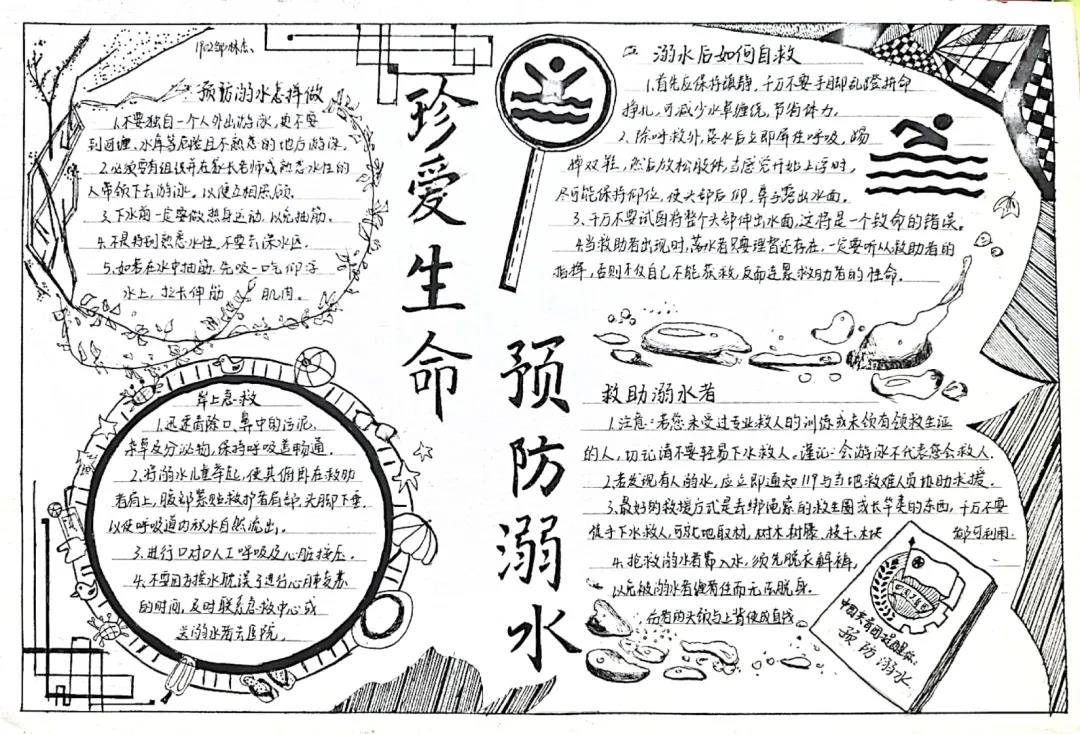 预防溺水怎样做
1.不要独自一个人外出游泳,更不要
到池塘、水库等危险且不熟悉的地方游泳。
2.必须要有组织并在家长老师或熟悉水性的
人带领下去游泳。以便互相照顾。
3.下水前一定要做热身运动,以免抽筋。
4.不是特别熟悉水性,不要去深水区。
5.如若在水中抽筋.先吸一口气仰浮
水上,拉长伸筋 肌肉。
岸上急救
1.迅速清除口、鼻中的污泥,
杂草及分泌物,保持呼吸道畅通
2.将溺水儿童举起,使其俯卧在救助
者肩上,腹部紧贴救护者肩部,头脚下垂,
以使呼吸道内积水自然流出。
3.进行口对口人工呼吸及心脏按压。
4.不要因为控水耽误了进行心肺复苏
的时间,及时联系急救中心或
送溺水者去医院。
珍爱生命
预防溺水
溺水后如何自救
1.首先应保持镇静,千万不要手脚乱蹬拼命
挣扎,可减少水草缠绕,节省体力。
2.除呼救外,落水后立即屏住呼吸,踢
掉双鞋,然后放松肢体,当感觉开始上浮时,
尽可能保持仰位,使头部后仰,鼻子露出水面。
3.千万不要试图将整个头部伸出水面,这将是一个致命的错误。
4.当救助者出现时,落水者只要理智还存在,一定要听从救助者的
指挥,否则不仅自己不能获救,反而连累救助者的性命。
救助溺水者
1.注意:若您未受过专业救人的训练或未领有领救生证
的人,切记请不要轻易下水救人。谨记:会游泳不代表您会救人.
2.若发现有人溺水,应立即通知119与当地救难人员协助求援.
3.最好的救援方式是丢绑绳索的救生圈或长竿类的东西,千万不要
徒手下水救人,可就地取材,树木树藤、枝干、木块 都可利用.
4.抢救溺水者带入水,须先脱衣解裤,
以免被溺水者缠着住而无法脱身.
后者的头颈与上背使成直线
中国共青团提醒您:
预防溺水